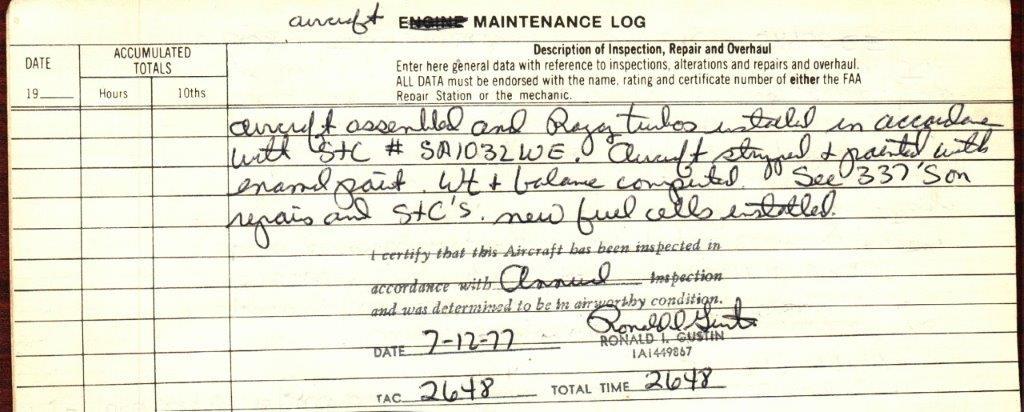 aircraft ENGINE MAINTENANCE LOG
DATE
19
ACCUMULATED
TOTALS
Hours 10ths
Description of Inspection, Repair and Overhaul
Enter here general data with reference to inspections, alterations and repairs and overhaul.
ALL DATA must be endorsed with the name, rating and certificate number of either the FAA
Repair Station or the mechanic.
aircraft assembled and Rajay turbos installed in accordance
with StC # SA1032WE. Aircraft stripped & painted with
enamel paint. Wt & balance computed. See 337's on
repairs and StC's. new fuel cells installed.
I certify that this Aircraft has been inspected in
accordance with Annual Inspection
and was determined to be in airworthy condition.
DATE 7-12-77
RONALD I. GUSTIN
IA1449867
TAC 2648 TOTAL TIME 2648